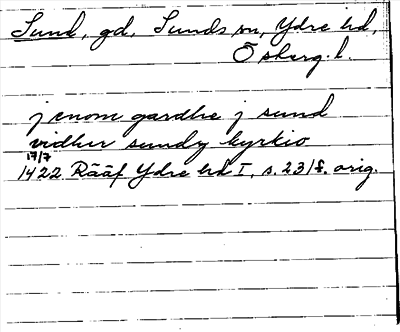 Sund, gd, Sunds sn, Ydre hd,
Östergl.
j enom gardhe j sund
vidher sundz kyrkio
17/7
1422 Rääf Ydre hd I, s. 231 f. orig.